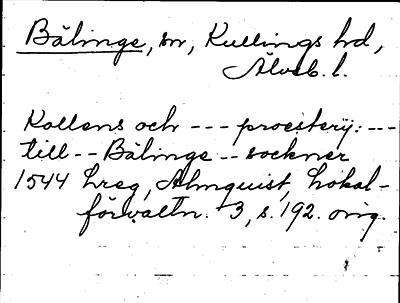 Bälinge, sn, Kullings hd,
Älvsb. l.
Kollens och --- proesterij: ---
till -- Bälinge -- sockner
1544 Hreg, Almquist, Lokal-
förvaltn. 3, s. 192. orig.